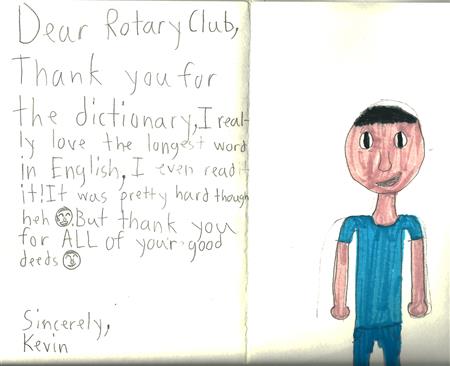 Dear Rotary Club,
Thank you for
the dictionary, I real-
ly love the longest word
in English, I even read it
it! It was pretty hard though
heh. But thank you
for ALL of your good
deeds
Sincerely,
Kevin